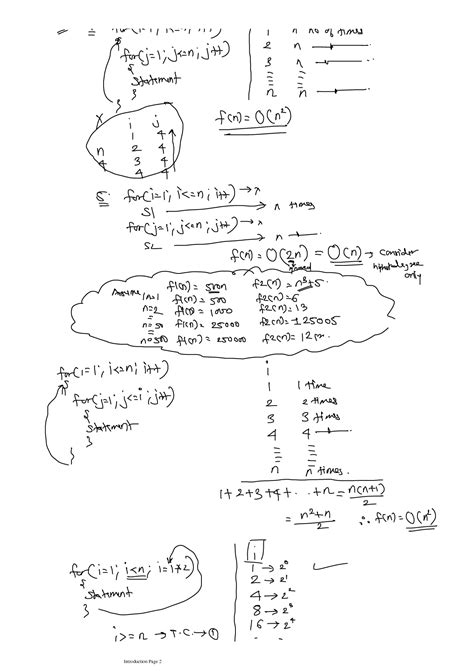 for(j=1; j<=n; j++)
{
statement
}
}
1 n no of times
2 n
3 n
n n
f(n) = O(n²)
i j
1 4
n 2 4
4 3 4
4 4
5. for(i=1; i<=n; i++) → n
S1 n times
for(j=1; j<=n; j++) → n
S2 n
f(n) = O(2n) = O(n) → consider
highest degree
only
Assume n=1 f1(n) = 500n f2(n) = n³+5
f1(n) = 500 f2(n) = 6
n=2 f1(n) = 1000 f2(n) = 13
n=50 f1(n) = 25000 f2(n) = 125005
n=500 f1(n) = 250000
for(i=1; i<=n; i++)
{
for(j=1; j<=i; j++)
{
statement
}
}
i
1 1 time
2 2 times
3 3 times
4 4
n n times.
1+2+3+4+ . . +n = n(n+1)
2
= n²+n
2
∴ f(n) = O(n²)
for(i=1; i<n; i=i*2)
{
statement
}
i
1 → 2⁰
2 → 2¹
4 → 2²
8 → 2³
16 → 2⁴
i>=n → T.C. → ①
Introduction Page 2